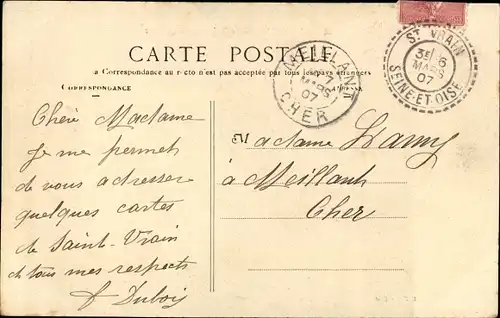 CARTE POSTALE
La Correspondance au recto n'est pas acceptée par tous les pays étrangers
CORRESPONDANCE
ADRESSE
ST VRAIN
3E 6
MARS
07
SEINE-ET-OISE
MEILLANT
7
MARS
07
CHER
Chère Madame
Je me permets
de vous adresser
quelques cartes
de Saint-Vrain
et tous mes respects
Dubois
Madame Lamy
à Meillant
Cher